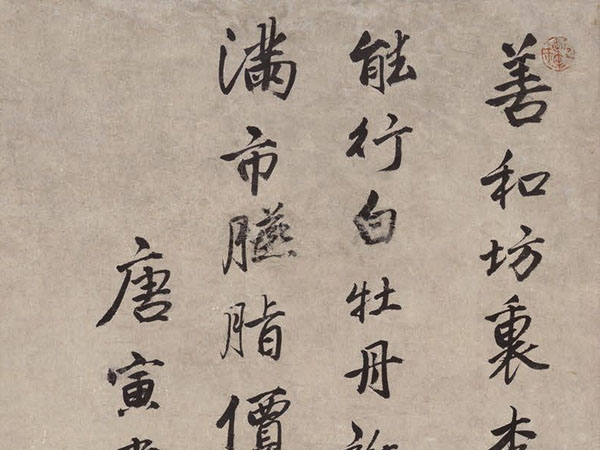 善和坊裏李
能行白牡丹
滿市臙脂價
唐寅